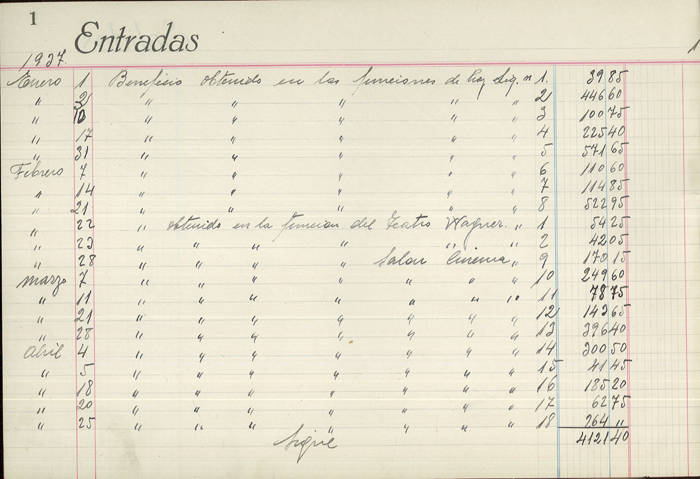 1
Entradas
1
1937.
Enero 1 Beneficio obtenido en las funciones de Liq. n 1. 39 85
" 2 " " " " " 2 446 60
" 10 " " " " " 3 100 75
" 17 " " " " " 4 225 40
" 31 " " " " " 5 571 65
Febrero 7 " " " " " 6 110 60
" 14 " " " " " 7 114 85
" 21 " " " " " 8 522 95
" 22 " obtenido en la funcion del Teatro Wagner. " 1 54 25
" 23 " " " " " " 2 42 05
" 28 " " " " Salon Cinema " 9 170 15
Marzo 7 " " " " " " " 10 249 60
" 11 " " " " " " " 11 78 75
" 21 " " " " " " " 12 143 65
" 28 " " " " " " " 13 396 40
Abril 4 " " " " " " " 14 300 50
" 5 " " " " " " " 15 41 45
" 18 " " " " " " " 16 185 20
" 20 " " " " " " " 17 62 75
" 25 " " " " " " " 18 264 "
Sigue 4121 40